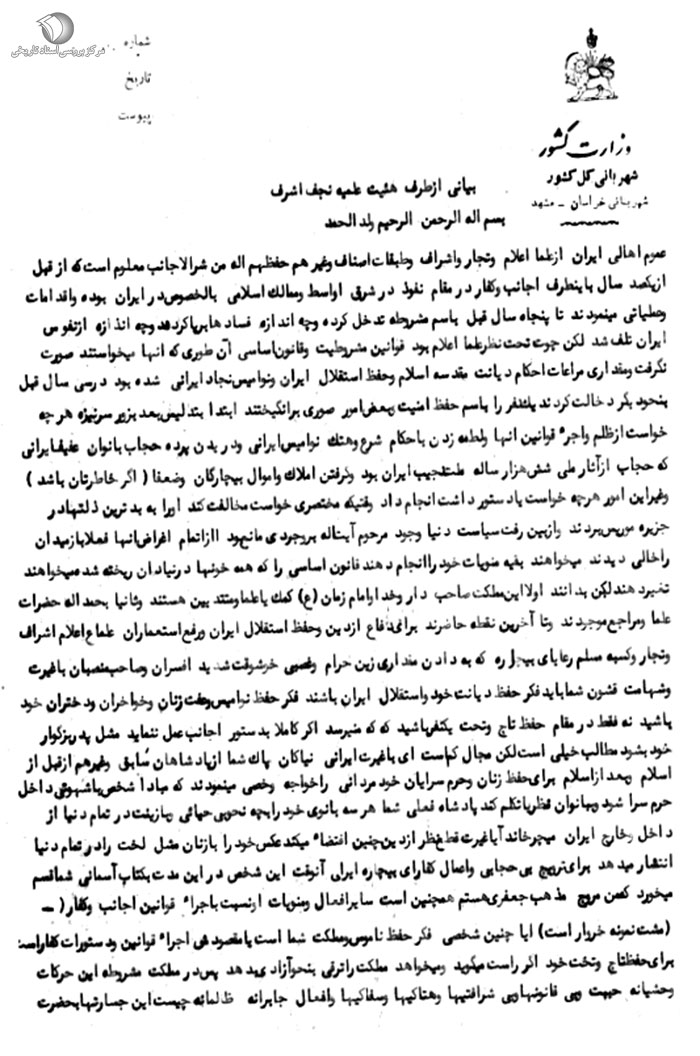 مرکز بررسی اسناد تاریخی
شماره
تاریخ
پیوست
وزارت کشور
شهربانی کل کشور
شهربانی خراسان - مشهد
بیانی ازطرف هئیت علمیه نجف اشرف
بسم اله الرحمن الرحیم ولد الحمد
عموم اهالی ایران ازعلما اعلام وتجار واشراف وطبقات اصناف وغیرهم حفظهم اله من شرالاجانب معلوم است که از قبل
ازیکصد سال باینطرف اجانب وکفار در مقام نفوذ در شرق اواسط وممالك اسلامی بالخصوص در ایران بوده واقدامات
وعملیاتی مینمودند تا پنجاه سال قبل باسم مشروطه تدخل کرده وچه اندازه فسادها برپا کردند وچه اندازه ازنفوس
ایران تلف شد لکن چون تحت نظر علما اعلام بود قوانین مشروطیت وقانون اساسی آن طوری که انها میخواستند صورت
نگرفت ومقداری مراعات احکام دیانت مقدسه اسلام وحفظ استقلال ایران ونوامیس نجاد ایرانی شده بود درسی سال قبل
بنحود یگر دخالت کردند یکنفر را باسم حفظ امنیت وبعض امور صوری برانگیختند ابتدا بتدلیس بعد بزور سرنیزه هرچه
خواست ازظلم واجرا قوانین انها ولطمه زدن باحکام شرع وهتك نوامیس ایرانی ودریدن پرده حجاب بانوان عفیف ایرانی
که حجاب ازآثار ملی شش هزار ساله ملت نجیب ایران بود وگرفتن املاك واموال بیچارگان وضعفا ( اگر خاطرتان باشد )
وغیراین امور هرچه خواست یادستور داشت انجام داد وقتیکه مختصری خواست مخالفت کند اورا به بدترین ذلتهادر
جزیره موریس بردند وازبین رفت سیاست دنیا وجود مرحوم آیت اله بروجردی مانع بود ازاتمام اغراض انها فعلا بازمیدان
راخالی دیدند میخواهند بقیه منویات خود راانجام دهند قانون اساسی را که همه خونها درنیادان ریخته شده میخواهند
تغییر دهند لکن بدانند اولا این مملکت صاحب دار وخدا وامام زمان (ع) کمك یا علما ومتدینین هستند وثانیا بحمد اله حضرات
علما ومراجع موجودند وتا آخرین نقطه حاضرند برای دفاع ازدین وحفظ استقلال ایران ورفع استعماران علماع اعلام اشراف
وتجار وکسبه مسلم رعایای بیچاره که به دادن مقداری زمین حرام وغصبی خرشوقت شدید افسران وصاحب منصبان باغیرت
وشهامت قشون شماباید فکر حفظ دیانت خود واستقلال ایران باشند فکر حفظ نوامیس وعفت زنان وخواخران ودختران خود
یاشید نه فقط در مقام حفظ تاج وتحت یکنفر باشید که که میترسد اگر کاملا بدستور اجانب عمل ننماید مثل پدربزگوار
خود بشود مطالب خیلی است لکن مجال کم است ای باغیرت ایرانی نیاکان پاك شما ازپادشاهان سابق وغیرهم ازقبل از
اسلام وبعد ازاسلام برای حفظ زنان وحرم سرایان خود مردانی راخواجه وخصی مینمودند که مبادا شخص باشهوتی داخل
حرم سرا شود وببانوان نظر یا تکلم کند پادشاه فعلی شما هر سه بانوی خود رابچه نحوبی حیائی وبازینت در تمام دنیا از
داخل وخارج ایران میچرخاند آیا غیرت قطع نظر ازدین چنین اقتضا میکند عکس خود را بازنان مثل لخت رادر تمام دنیا
انتشار میدهد برای ترویج بی حجابی واعمال کفار ای بیچاره ایرانی آنوقت این شخص در این مدت بکتاب آسمانی شما قسم
میخورد که من مروج مذهب جعفری هستم همچنین است سایر افعال ومنویات اونسبت باجرا قوانین اجانب وکفار ( -
(مشت نمونه خروار است) ایا چنین شخصی فکر حفظ ناموس ومملکت شما است یا مقصودش اجرا قوانین ودستورات کفاراست
برای حفظ تاج وتخت خود اگر راست میگوید ومیخواهد مملکت راترقی بدهد پس در مملکت مشروطه این حرکات
وحشیانه چیست وبی قانونیها وبی شرافتیها وهتاکیها وسفاکیها وافعال جابرانه ظالمانه چیست این جسارتها بحضرت